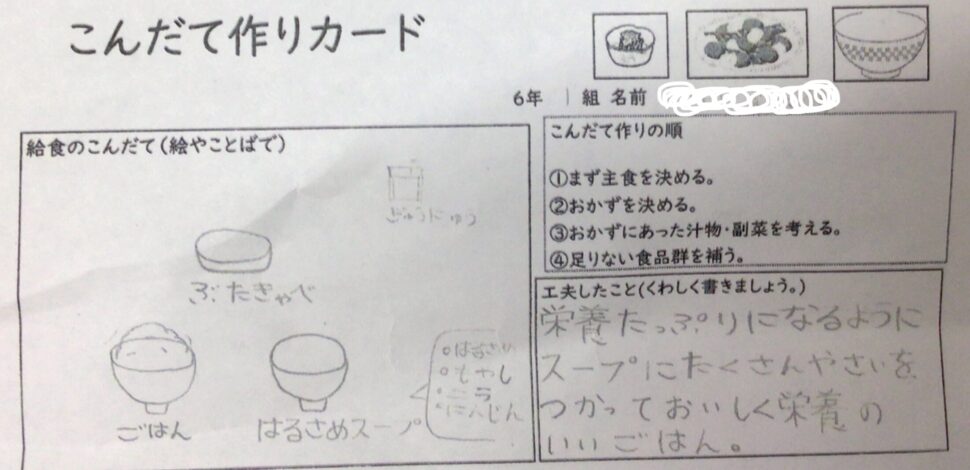 こんだて作りカード
6年 1組 名前
給食のこんだて(絵やことばで)
ぎゅうにゅう
ぶたきゃべ
ごはん
はるさめスープ
はるさめ
もやし
ニラ
にんじん
こんだて作りの順
①まず主食を決める。
②おかずを決める。
③おかずにあった汁物・副菜を考える。
④足りない食品群を補う。
工夫したこと(くわしく書きましょう。)
栄養たっぷりになるように
スープにたくさんやさいを
つかっておいしく栄養の
いいごはん。